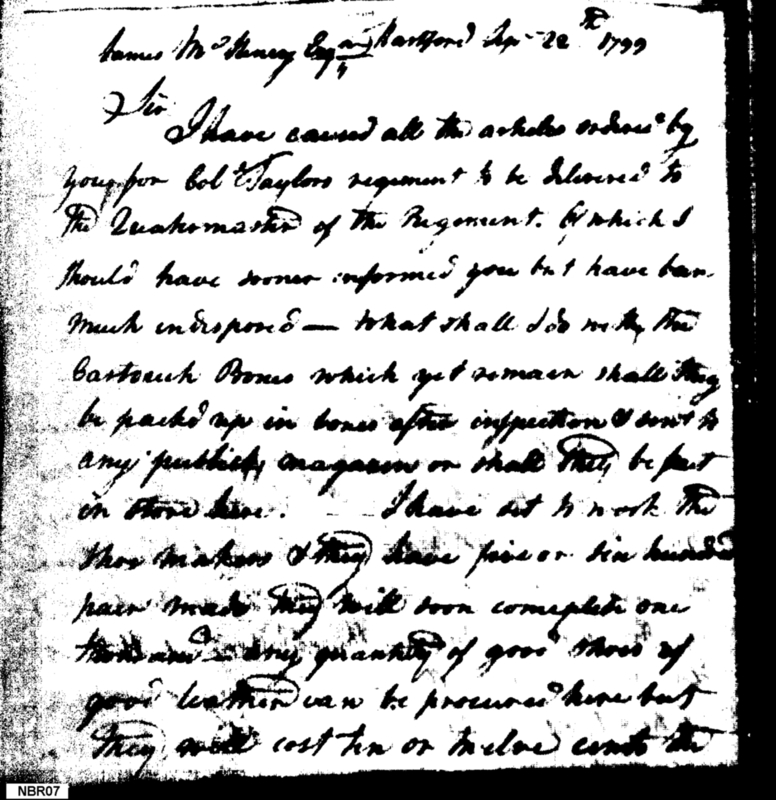 James McHenry Esqr Hartford Sep 22th 1799
Sir
I have caused all the articles ordered by
you for Colo Taylors regiment to be delivered to
the Quatermaster of the Regement. Of which I
should have sooner informed you but have ban
much indisposed — what shall I do with the
Cartouch Boxes which yet remain shall they
be packd up in boxes after inspection & sent to
any publick magazin or shall they be put
in store here. I have set to work the
shoe makers & they have five or six hundred
pair made they will soon compleate one
thousand — any quantity of good shoes of
good leather can be procured here but
they will cost ten or twelve cents the
NBR07